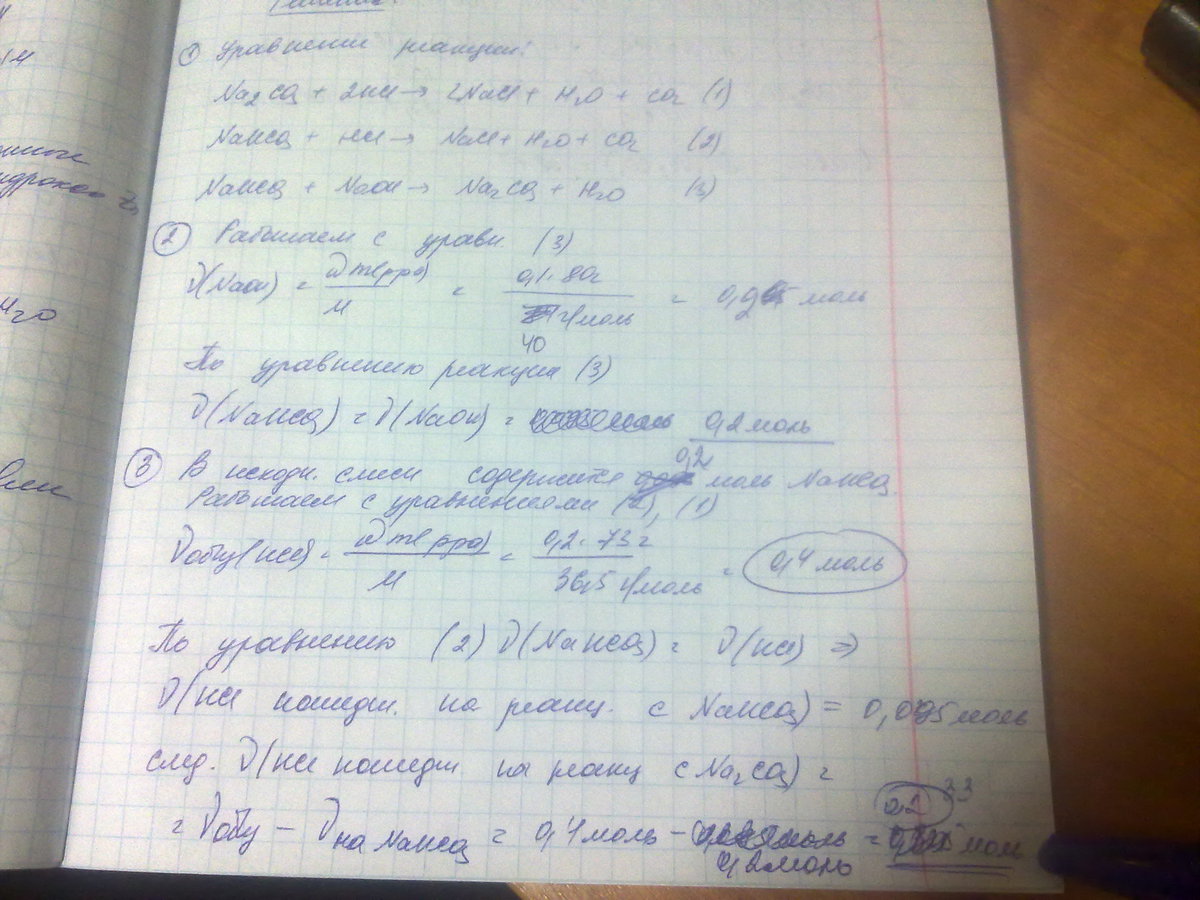 14
H₂O
① Уравнения реакции:
Na₂CO₃ + 2HCl → 2NaCl + H₂O + CO₂ (1)
NaHCO₃ + HCl → NaCl + H₂O + CO₂ (2)
NaHCO₃ + NaOH → Na₂CO₃ + H₂O (3)
② Работаем с уравн (3)
ν(NaOH) = ω m(р-ра) / M = 0,1 · 80г / 40 г/моль = 0,2 моль
По уравнению реакции (3)
ν(NaHCO₃) = ν(NaOH) = 0,2 моль
③ В исходн. смеси содержится 0,2 моль NaHCO₃.
Работаем с уравнениями (2), (1)
νобщ(HCl) = ω m(р-ра) / M = 0,2 · 73 г / 36,5 г/моль = 0,4 моль
По уравнению (2) ν(NaHCO₃) = ν(HCl) ⇒
ν(HCl пошедш. на реакц. с NaHCO₃) = моль
след. ν(HCl пошедш на реакц с Na₂CO₃) =
= νобщ – ν на NaHCO₃ = 0,4 моль – 0,2 моль = 0,2 моль